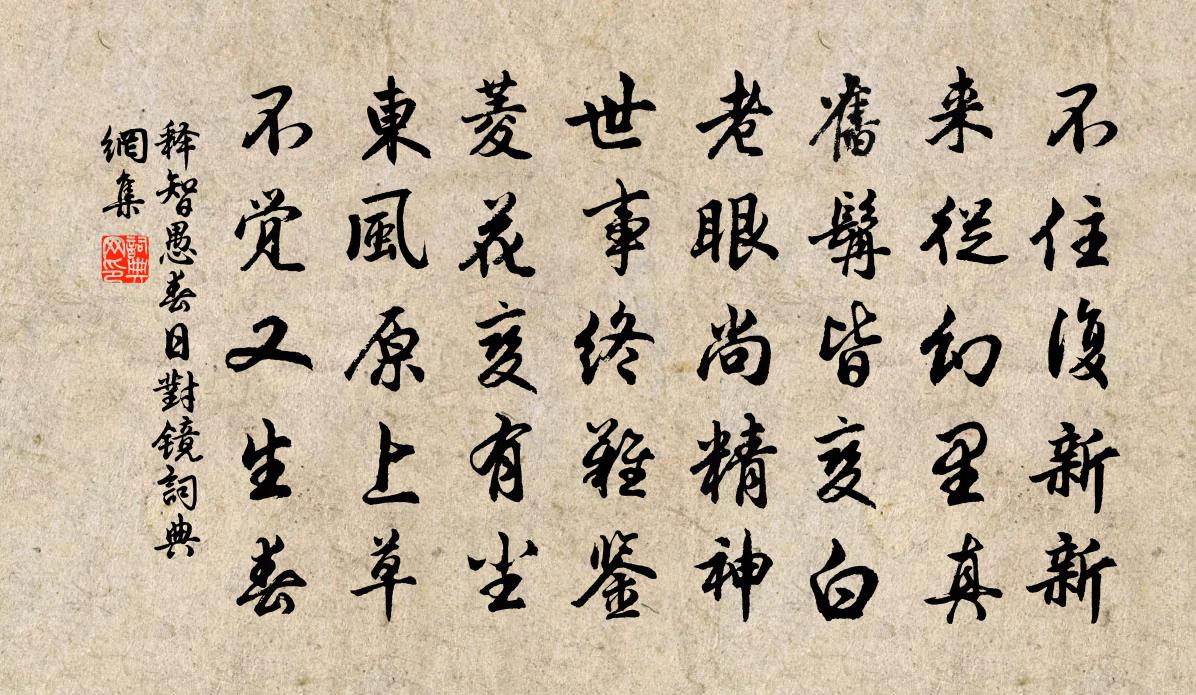 不住復新新
来從幻里真
舊鬢皆变白
老眼尚精神
世事终難鉴
菱花变有尘
東風原上草
不觉又生春
释智愚春日對镜詞典
網集
詞典
网印